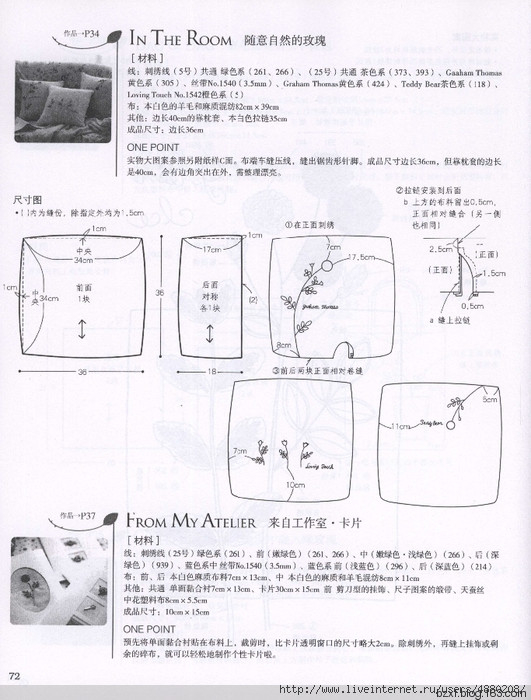 作品→P34
IN THE ROOM 随意自然的玫瑰
[材料]
线：刺绣线（5号）共通 绿色系（261、266）、（25号）共通 茶色系（373、393）、Gaaham Thomas
黄色系（305）、丝带No.1540（3.5mm）、Graham Thomas黄色系（424）、Teddy Bear茶色系（118）、
Loving Touch No.1542橙色系（5）
布：本白色的羊毛和麻质混纺82cm×39cm
其他：边长40cm的靠枕套、本白色拉链35cm
成品尺寸：边长36cm
ONE POINT
实物大图案参照另附纸样C面。布端车缝压线，缝出锯齿形针脚。成品尺寸边长36cm，但靠枕套的边长
是40cm，会有边角突出在外，需整理漂亮。
尺寸图
•( )内为缝份，除指定外均为1.5cm
1cm
中央
34cm
1cm
中央
34cm
前面
1块
36
36
1cm
17cm
后面
对称
各1块
(2)
18
①在正面刺绣
7cm
17.5cm
Graham Thomas
8cm
②拉链安装到后面
b 上方的布料留出0.5cm，
正面相对缝合（另一侧
也相同）
2.5cm
(正面)
(正面)
1.5cm
0.5cm
a 缝上拉链
③前后两块正面相对卷缝
7cm
Loving Touch
10cm
5cm
11cm
作品→P37
FROM MY ATELIER 来自工作室·卡片
[材料]
线：刺绣线（25号）绿色系（261）、前（嫩绿色）（261、266）、中（嫩绿色·浅绿色）（266）、后（深
绿色）（939）、蓝色系中 丝带No.1540（3.5mm）、蓝色系 前（浅蓝色）（296）、后（深蓝色）（214）
布：前、后 本白色麻质布料7cm×13cm、中 本白色的麻质和羊毛混纺8cm×11cm
其他：共通 单面黏合衬7cm×13cm、卡片30cm×15cm 前 剪刀型的挂饰、尺子图案的缎带、天蚕丝
中花塑料布8cm×5.5cm
成品尺寸：10cm×15cm
ONE POINT
预先将单面黏合衬贴在布料上，裁剪时，比卡片透明窗口的尺寸略大2cm。除刺绣外，再缝上挂饰或剩
余的碎布，就可以轻松地制作个性卡片啦。
72
http://www.liveinternet.ru/users/4880208/
bzxf.blog.163.com